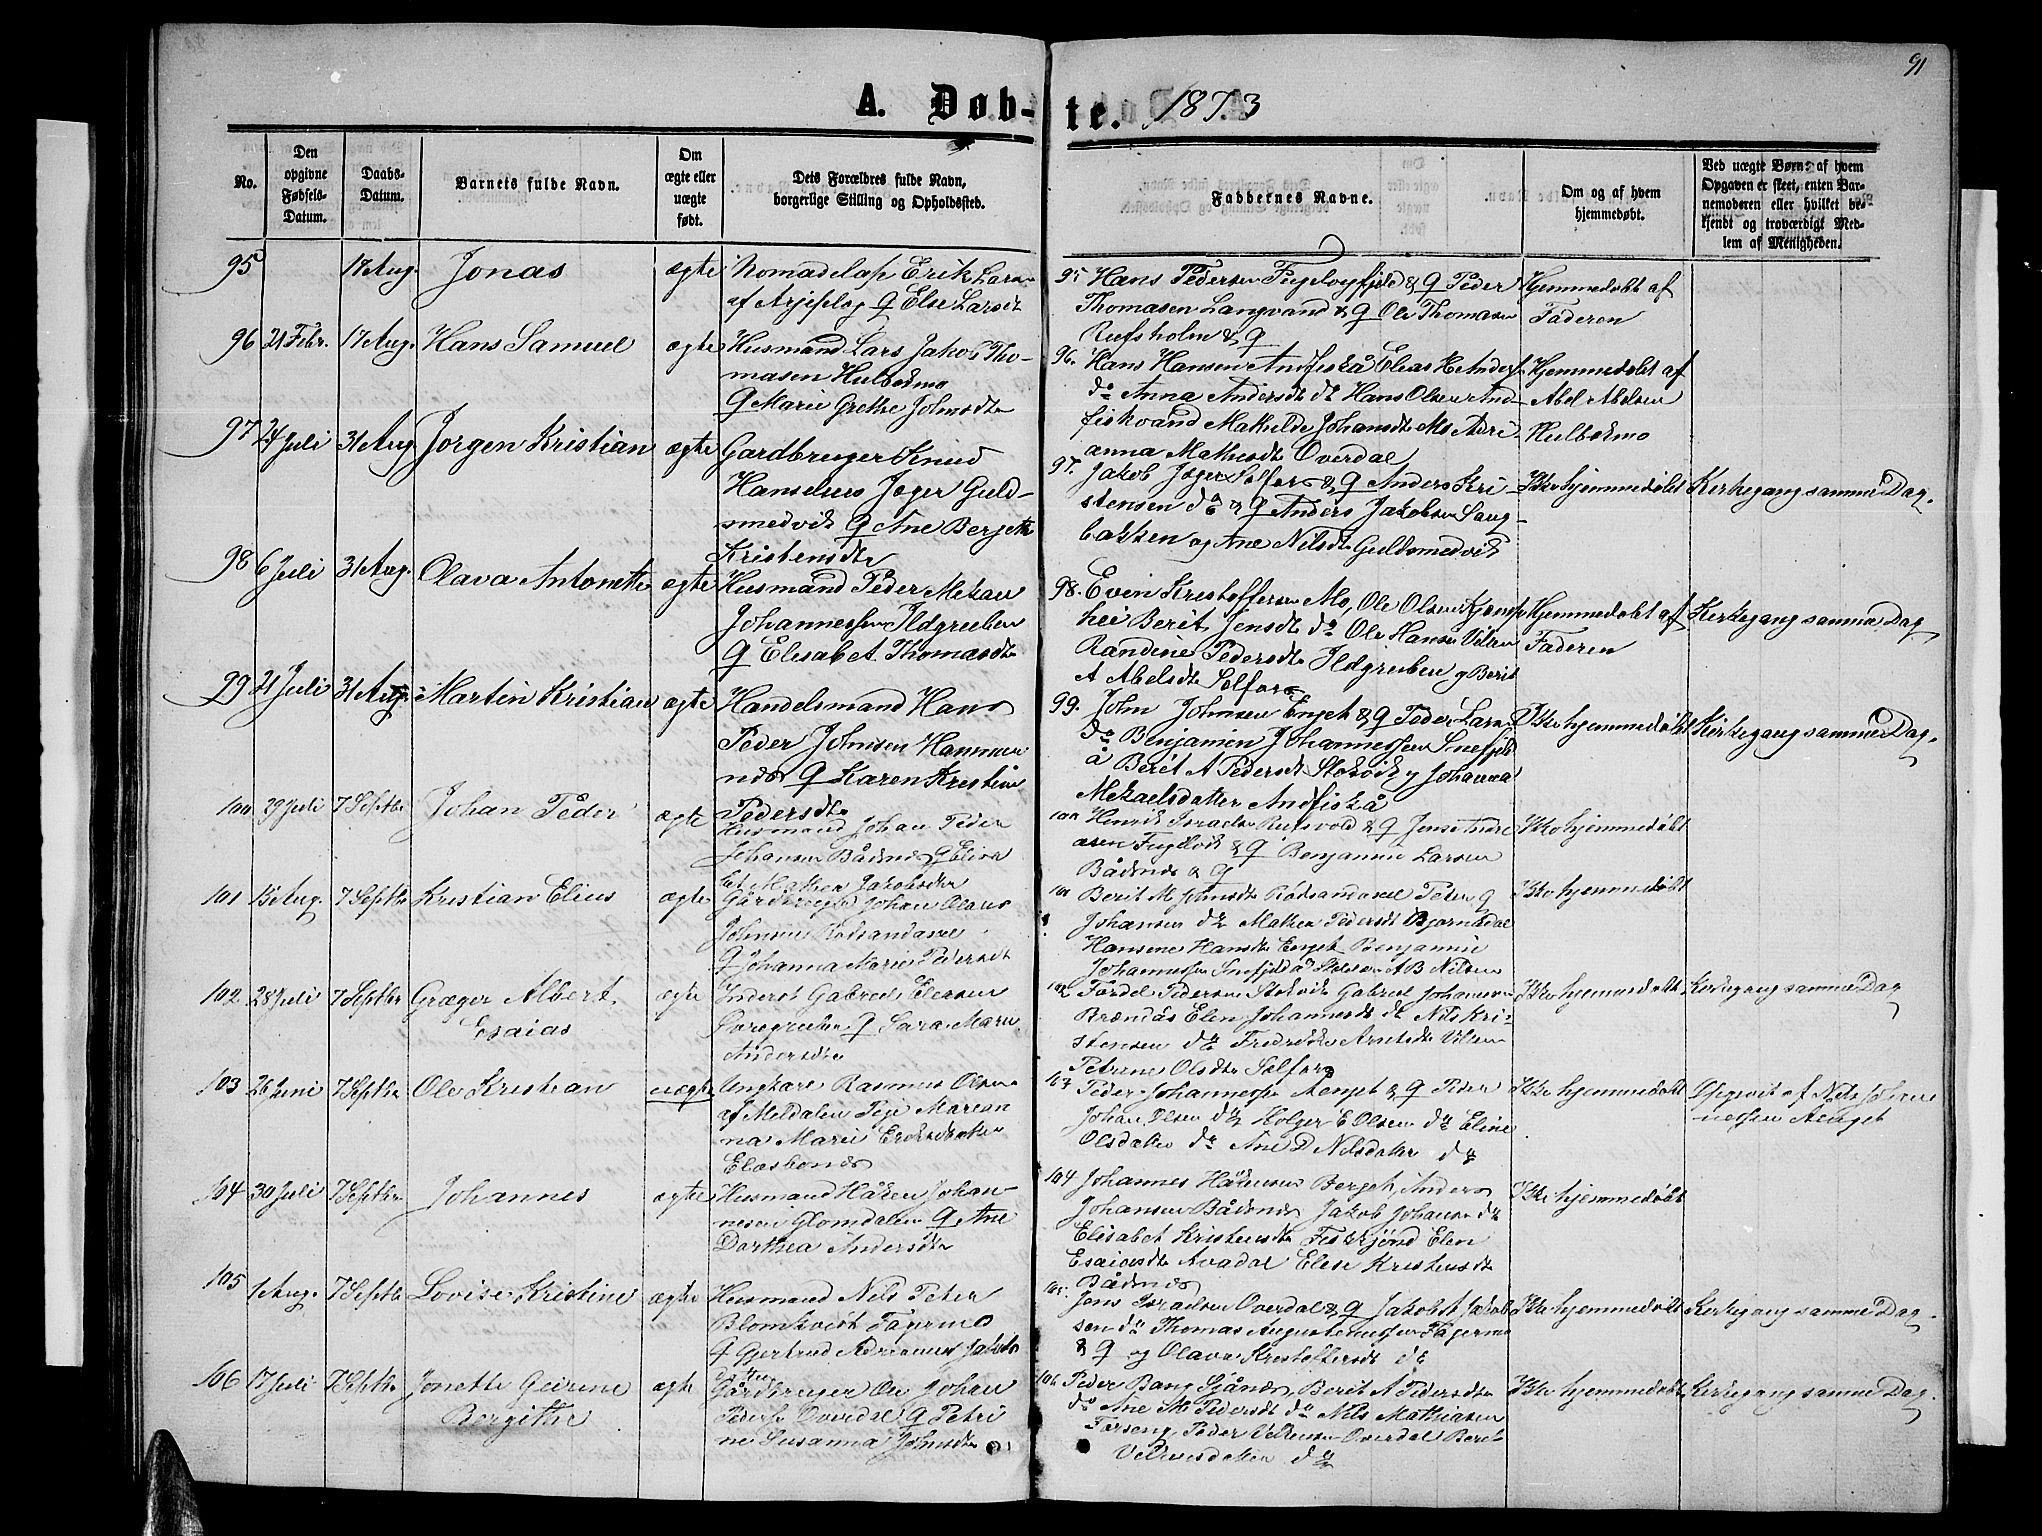 91
A. Døb-
te. 1873
No.
Den
opgivne
Fødsels-
Datum.
Daabs-
Datum.
Barnets fulde Navn.
Om
ægte eller
uægte
født.
Dets Forældres fulde Navn,
borgerlige Stilling og Opholdssted.
Faddernes Navne.
Om og af hvem
hjemmedøbt.
Ved uægte Børn: af hvem
Opgaven er skeet, enten Bar-
nemoderen eller hvilket be-
kjendt og troværdigt Med-
lem af Menigheden.
95 17 Aug. Jonas ægte Nomadelap Erik Larsn
af Arjeplog & Else Larsdt
95 Hans Pedersen Fugelvogfjeld & Q Peder
Thomasen Langvand & Q Ole Thomasen
Rufsholm & Q
Hjemmedøbt af
Faderen
96 21 Febr. 17 Aug. Hans Samuel ægte Husmand Lars Jakob Tho-
masen Hulbekmo
Q Marie Grethe Johnsdtr
96. Hans Hansen Andfiskå Elias H Andf
do Anna Andersdt do Hans Olsen And-
fiskvand Mathilde Johansdtr Mo Adri-
anna Mathisdt Overdal
Hjemmedøbt af
Abel Abelsen
Hulbekmo
97 24 Juli 31 Aug Jørgen Kristian ægte Gardbruger Knud
Hanselius Jæger Guld-
smedvik Q Ane Bergette
Kristensdtr
97. Jakob Jæger Selfors & Q Anders Kri-
stensen do & Q Anders Jakobsen Lang-
bakken og Ane Nilsdtr Guldsmedvik
Ikke hjemmedøbt Kirkegang samme Dag.
98 6 Juli 31 Aug. Olava Antonette ægte Husmand Peder Mekael
Johannessen Ildgruben
Q Elisabet Thomasdtr
98. Even Kristoffersen Mo, Ole Olsen
hei Berit Jensdtr do Ole Hansen
Randine Pedersdtr Ildgruben og Berit
A Abelsdtr Selfors
Hjemmedøbt af
Faderen
Kirkegang samme Dag
99 21 Juli 31 Aug. Martin Kristian ægte Handelsmand Hans
Peder Johnsen Hammer
nes Q Karen Kristine
Pedersdtr
99. John Johnsen Enget & Q Peder Larsn
do Benjamin Johannessen Snefjeld
å Berit A Pedersdt Stokvik og Johanna
Mekaelsdatter Andfiskå
Ikke hjemmedøbt Kirkegang samme Dag.
100 29 Juli 7 Septbr Johan Peder ægte Husmand Johan Peder
Johansen Bådsnes Q Elisa
bet Maken Jakobsdtr
100 Henrik Israelsn Rufsvold & Q Jens Andre
asen Fuglvik & Q Benjamin Larsen
Bådsnes & Q
Ikke hjemmedøbt
101 15 Aug. 7 Septbr Kristian Elius ægte Gårdbruger Johan Olaus
Johnsen Rødsandaxel
Q Johanna Marie Pedersdt
101 Berit M Johnsdtr Rødsandaxel Peter Q
Johansen do Maken Pedersdt Bjørnådal
Hansine Hansdtr Enget Benjamin
Johannessen Snefjeldå A B Nilsen
Ikke hjemmedøbt
102 28 Juli 7 Septbr Græger Albert
Esaias
ægte Inderst Gabriel Elersen
Q Sara Marie
Andersdtr
102 Tordel Pedersen Stokvik Gabriel Johansen
Brændås Elen Johannesdt do Nils Kri-
stensen do Fredrikke Arntsdt
Petrine Olsdtr Selfors
Ikke hjemmedøbt. Kirkegang samme Dag
103 26 Juni 7 Septbr Ole Kristian uægte Ungkarl Rasmus Olsen
af Meldalen Pige Marian
na Marie Eriksdatter
103 Peder Johannessen Aenget & Q Peder
Johan Olsen do Holger E Olsen do Eline
Olsdatter do Ane D Nilsdatter do
Ikke hjemmedøbt Opgivet af Nils Johan
nessen Aenget
104 30 Juli 7 Septbr Johannes ægte Husmand Håken Johan-
nesen Glomdalen Q Ane
Dorthea Andersdtr
104 Johannes Håkensen Berget, Anders
Johansen Bådsnes Jakob Johansn do
Elisabet Kristensdtr Fisktjønd Elen
Esaiasdtr Avadal Elese Kristensdtr
Bådsnes
Ikke hjemmedøbt
105 1 Aug. 7 Septbr Lovise Kristine ægte Husmand Nils Peter
Blomkvist Fagermo
Q Gjertrud Adrianna Jakobs
datter
105. Jens Israelsen Overdal & Q Jakob A Jakob
sen do Thomas Augustinussen Fagermo
& Q og Olava Kristoffersdt do
Ikke hjemmedøbt Kirkegang samme Dag.
106 17 Juli 7 Septbr Jonette Geirine
Bergithe
ægte Gårdbruger Ole Johan
Pedersn Overdal Q Petri
ne Susanna Johnsdtr
106 Peder Bang Sjånes, Berit A Pedersdtr
do Ane M Pedersdt do Nils Mathiasen
Forseng Peder Overdal Berit
do
Ikke hjemmedøbt Kirkegang samme Dag.